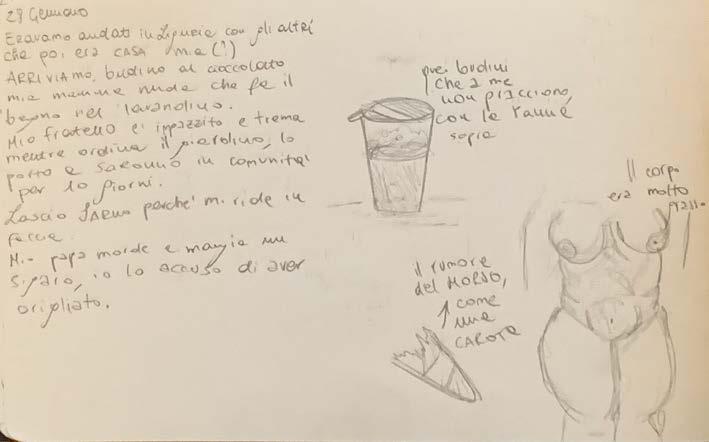 28 Gennaio
Eravamo andati in Liguria con gli altri
che poi era CASA mia (!)
ARRIVIAMO, budino al cioccolato
mia mamma nuda che fa il
bagno nel lavandino.
Mio fratello è impazzito e trema
mentre ordina il giardino, lo
porto a Saronno in comunità
per 10 giorni.
Lascio perché mi ride in
faccia.
Mio papà morde e mangia un
sigaro, io lo accuso di aver
origliato.
quei budini
che a me
non piacciono,
con la panna
sopra
Il corpo
era molto
grasso
il rumore
del MORSO,
come
una
CAROTA